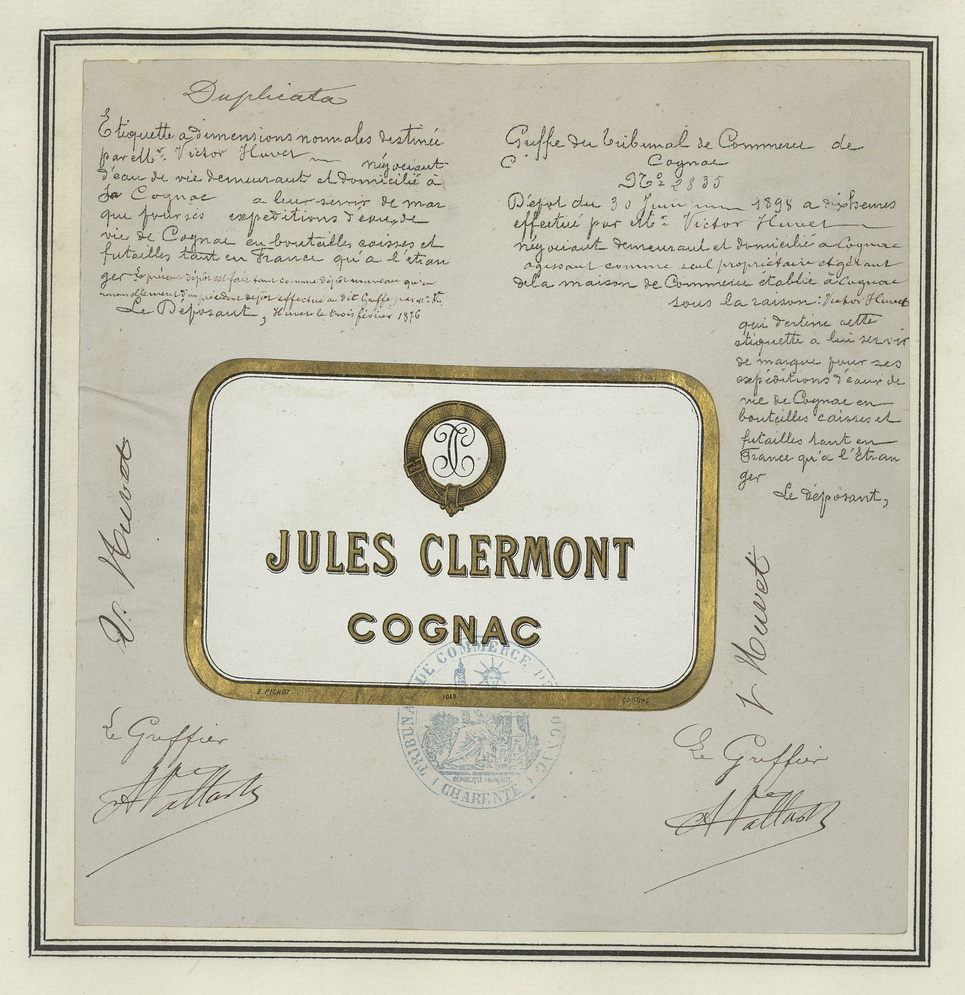 Duplicata
Etiquette a dimensions normales destinée
par Mr. Victor Huvet négociant
d'eau de vie demeurant et domicilié à
Cognac a leur servir de mar
que pour ses expéditions d'eaux de
vie de Cognac en bouteilles caisses et
futailles tant en France qu'a l'étran
ger Le présent dépôt est fait tant comme dépôt nouveau qu'en
renouvellement d'un précédent dépôt effectué au dit Greffe par
Le Déposant, Huvet le trois février 1876
Greffe du Tribunal de Commerce de
Cognac
No 2835
Dépot du 30 Juin 1898 a dix heures
effectué par Mr. Victor Huvet
négociant demeurant et domicilié a Cognac
agissant comme seul propriétaire et gérant
de la maison de Commerce établie à Cognac
sous la raison: Victor Huvet
qui destine cette
étiquette a lui servir
de marque pour ses
expéditions d'eaux de
vie de Cognac en
bouteilles caisses et
futailles tant en
France qu'a l'Etran
ger
Le déposant,
V. Huvet
JC
JULES CLERMONT
COGNAC
E. PICHOT
COGNAC
V. Huvet
TRIBUNAL DE COMMERCE DE COGNAC
REPUBLIQUE FRANÇAISE
( CHARENTE )
Le Greffier
Le Greffier